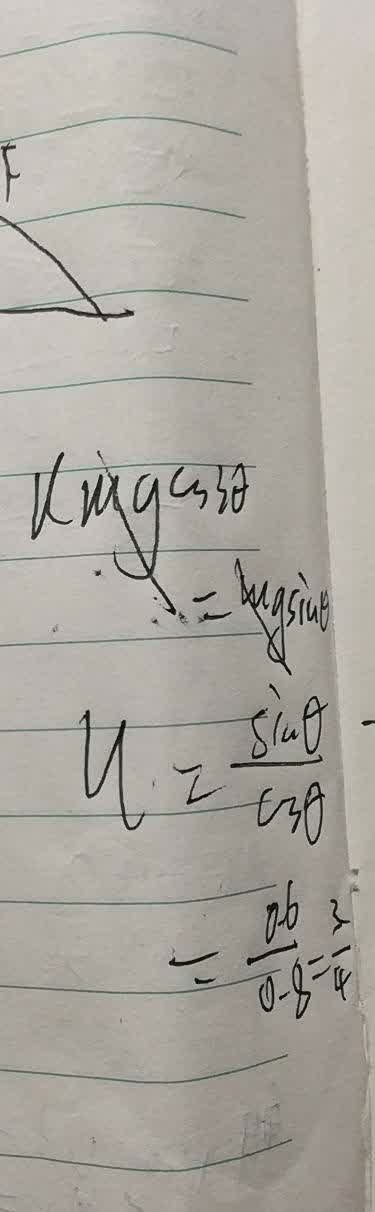 F
μmgcosθ
= mgsinθ
μ = sinθ/cosθ
= 0.6/0.8 = 3/4